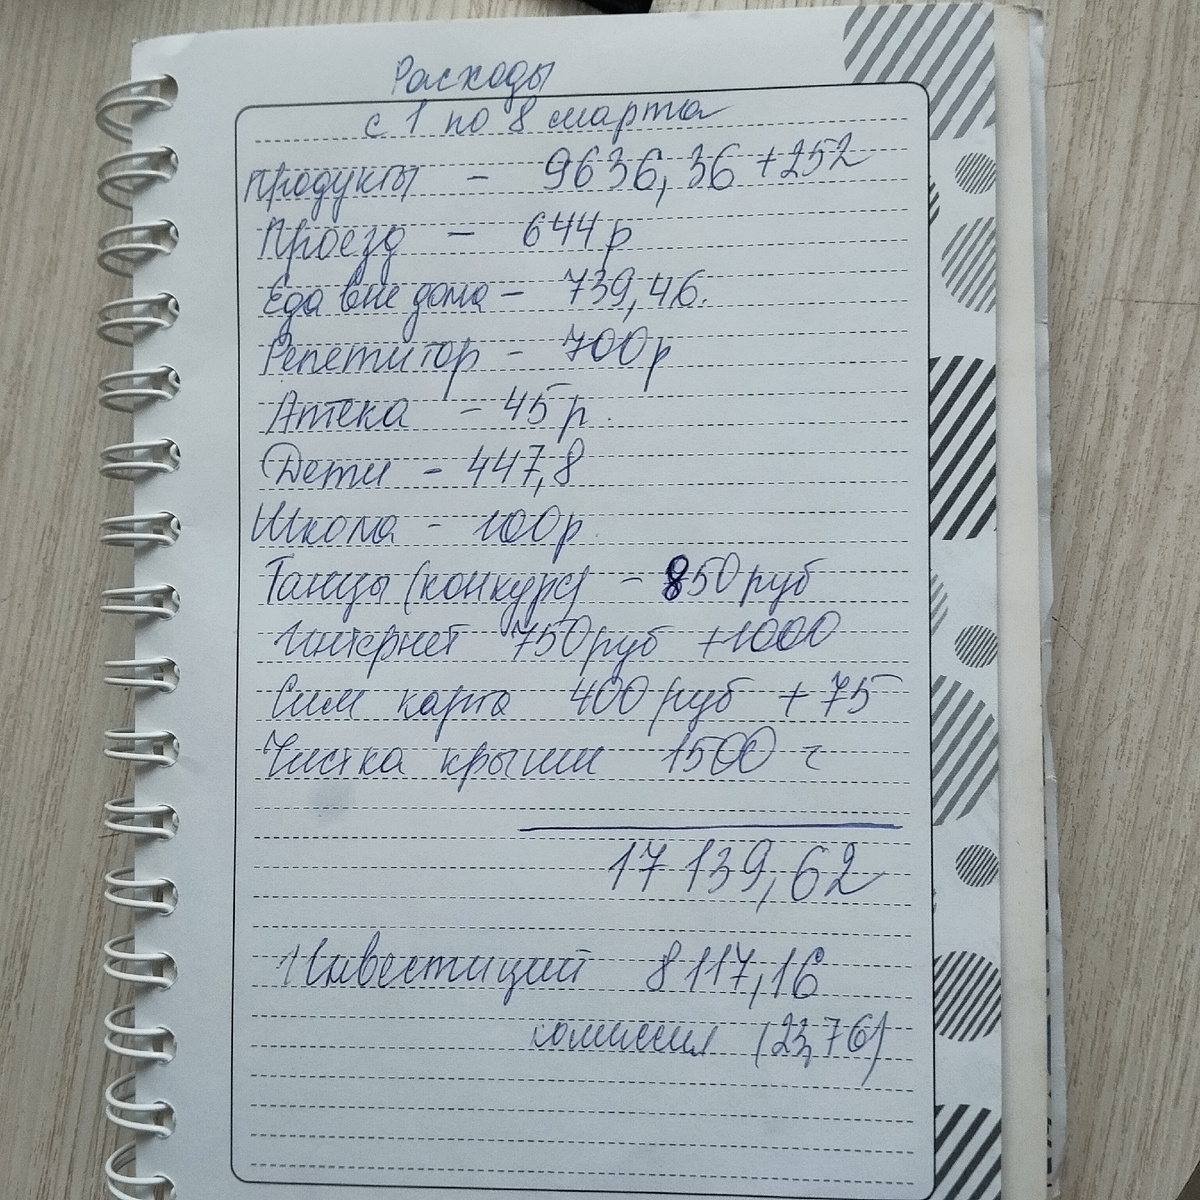 Расходы
с 1 по 8 марта
продукты - 9636,36 +252
Проезд - 644р
Еда вне дома - 739,46.
Репетитор - 700р
Аптека - 45р.
Дети - 447,8
Школа - 100р.
Танцы (конкурс) - 850 руб
Интернет 750руб +1000
Сим карта 400 руб + 75
Чистка крыши 1500 г
17 139,62
Инвестиций 8 117,16
комиссия (23,76)